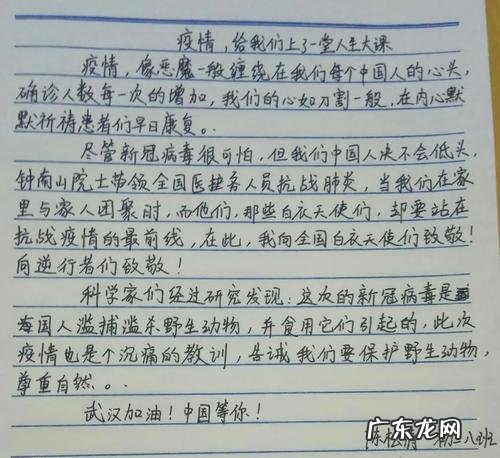 疫情，给我们上了一堂人生大课
疫情，像恶魔一般缠绕在我们每个中国人的心头，
确诊人数每一次的增加，我们的心如刀割一般，在内心默
默祈祷患者们早日康复。
尽管新冠病毒很可怕，但我们中国人决不会低头，
钟南山院士带领全国医护务人员抗战肺炎，当我们在家
里与家人团聚时，而他们，那些白衣天使们，却要站在
抗战疫情的最前线，在此，我向全国白衣天使们致敬！
向逆行者们致敬！
科学家们经过研究发现：这次的新冠病毒是
每国人滥捕滥杀野生动物，并食用它们引起的，此次
疫情也是个沉痛的教训，告诫我们要保护野生动物，
尊重自然。
武汉加油！中国等你！
陈松 初二八班
广东龙网